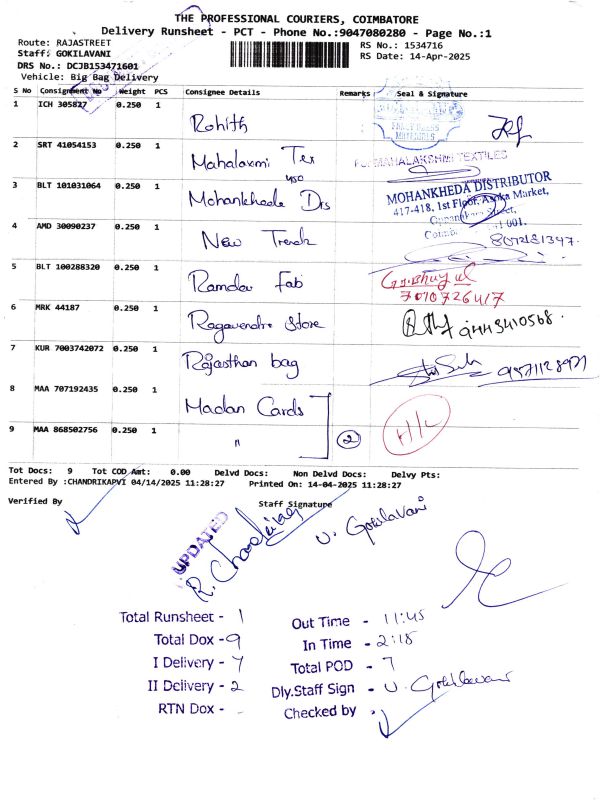 THE PROFESSIONAL COURIERS, COIMBATORE
Delivery Runsheet - PCT - Phone No.:9047080280 - Page No.:1
Route: RAJASTREET
RS No.: 1534716
Staff: GOKILAVANI
RS Date: 14-Apr-2025
DRS No.: DCJB153471601
Vehicle: Big Bag Delivery
S No Consignment No Weight PCS Consignee Details Remarks Seal & Signature
1 ICH 305827 0.250 1 Rohith
PRESS
MATERIALS
2 SRT 41054153 0.250 1 Mahalaxmi Tex
450
For MAHALAKSHMI TEXTILES
3 BLT 101031064 0.250 1 Mohankheda Drs
MOHANKHEDA DISTRIBUTOR
417-418, 1st Floor, Market,
Street,
001.
4 AMD 30090237 0.250 1 New Trendz
5 BLT 100288320 0.250 1 Ramdev Fab
7070726417
6 MRK 44187 0.250 1 Ragavendra Store 9443410568.
7 KUR 7003742072 0.250 1 Rajasthan bag
8 MAA 707192435 0.250 1 Madan Cards
9 MAA 868502756 0.250 1 " 2
H/L
Tot Docs: 9 Tot COD Amt: 0.00 Delvd Docs: Non Delvd Docs: Delvy Pts:
Entered By :CHANDRIKAPVI 04/14/2025 11:28:27 Printed On: 14-04-2025 11:28:27
Verified By Staff Signature
UPDATED
R. Chandrika
V. Gokilavani
Total Runsheet - 1 Out Time - 11:45
Total Dox - 9 In Time - 2:15
I Delivery - 7 Total POD - 7
II Delivery - 2 Dly.Staff Sign - V. Gokilavani
RTN Dox - - Checked by